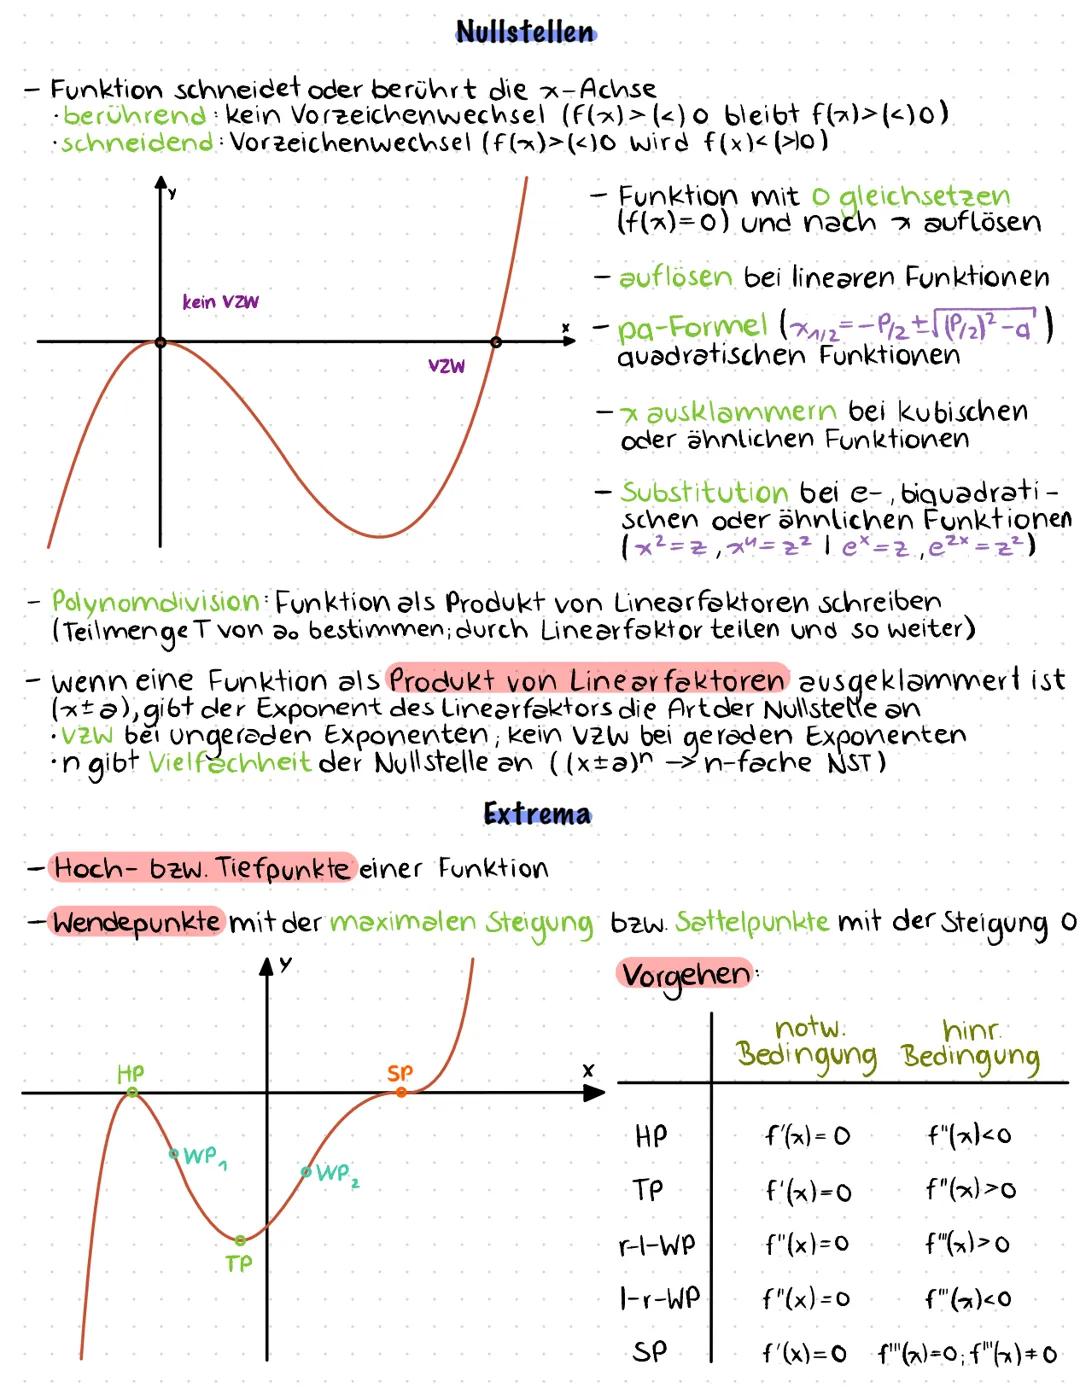 Nullstellen
- Funktion schneidet oder berührt die x-Achse
· berührend: kein Vorzeichenwechsel (f(x)>(<)0 bleibt f(x)>(<)0)
· schneidend: Vorzeichenwechsel (f(x)>(<)0 wird f(x)<(>)0)
y
kein VZW
x
VZW
- Funktion mit 0 gleichsetzen
(f(x)=0) und nach x auflösen
- auflösen bei linearen Funktionen
- pq-Formel (x₁/₂=-P/2 ±√(P/2)²-q)
quadratischen Funktionen
- x ausklammern bei kubischen
oder ähnlichen Funktionen
- Substitution bei e-, biquadrati-
schen oder ähnlichen Funktionen
(x²=z, x⁴=z² | eˣ=z, e²ˣ=z²)
- Polynomdivision: Funktion als Produkt von Linearfaktoren schreiben
(Teilmenge T von a₀ bestimmen; durch Linearfaktor teilen und so weiter)
- wenn eine Funktion als Produkt von Linearfaktoren ausgeklammert ist
(x±a), gibt der Exponent des Linearfaktors die Art der Nullstelle an
· VZW bei ungeraden Exponenten; kein VZW bei geraden Exponenten
· n gibt Vielfachheit der Nullstelle an ((x±a)ⁿ → n-fache NST)
Extrema
- Hoch- bzw. Tiefpunkte einer Funktion
- Wendepunkte mit der maximalen Steigung bzw. Sattelpunkte mit der Steigung 0
y
HP
SP
x
WP₁
WP₂
TP
Vorgehen:
notw. Bedingung hinr. Bedingung
HP f'(x)=0 f''(x)<0
TP f'(x)=0 f''(x)>0
r-l-WP f''(x)=0 f'''(x)>0
l-r-WP f''(x)=0 f'''(x)<0
SP f'(x)=0 f'''(x)=0; f'''(x)≠0